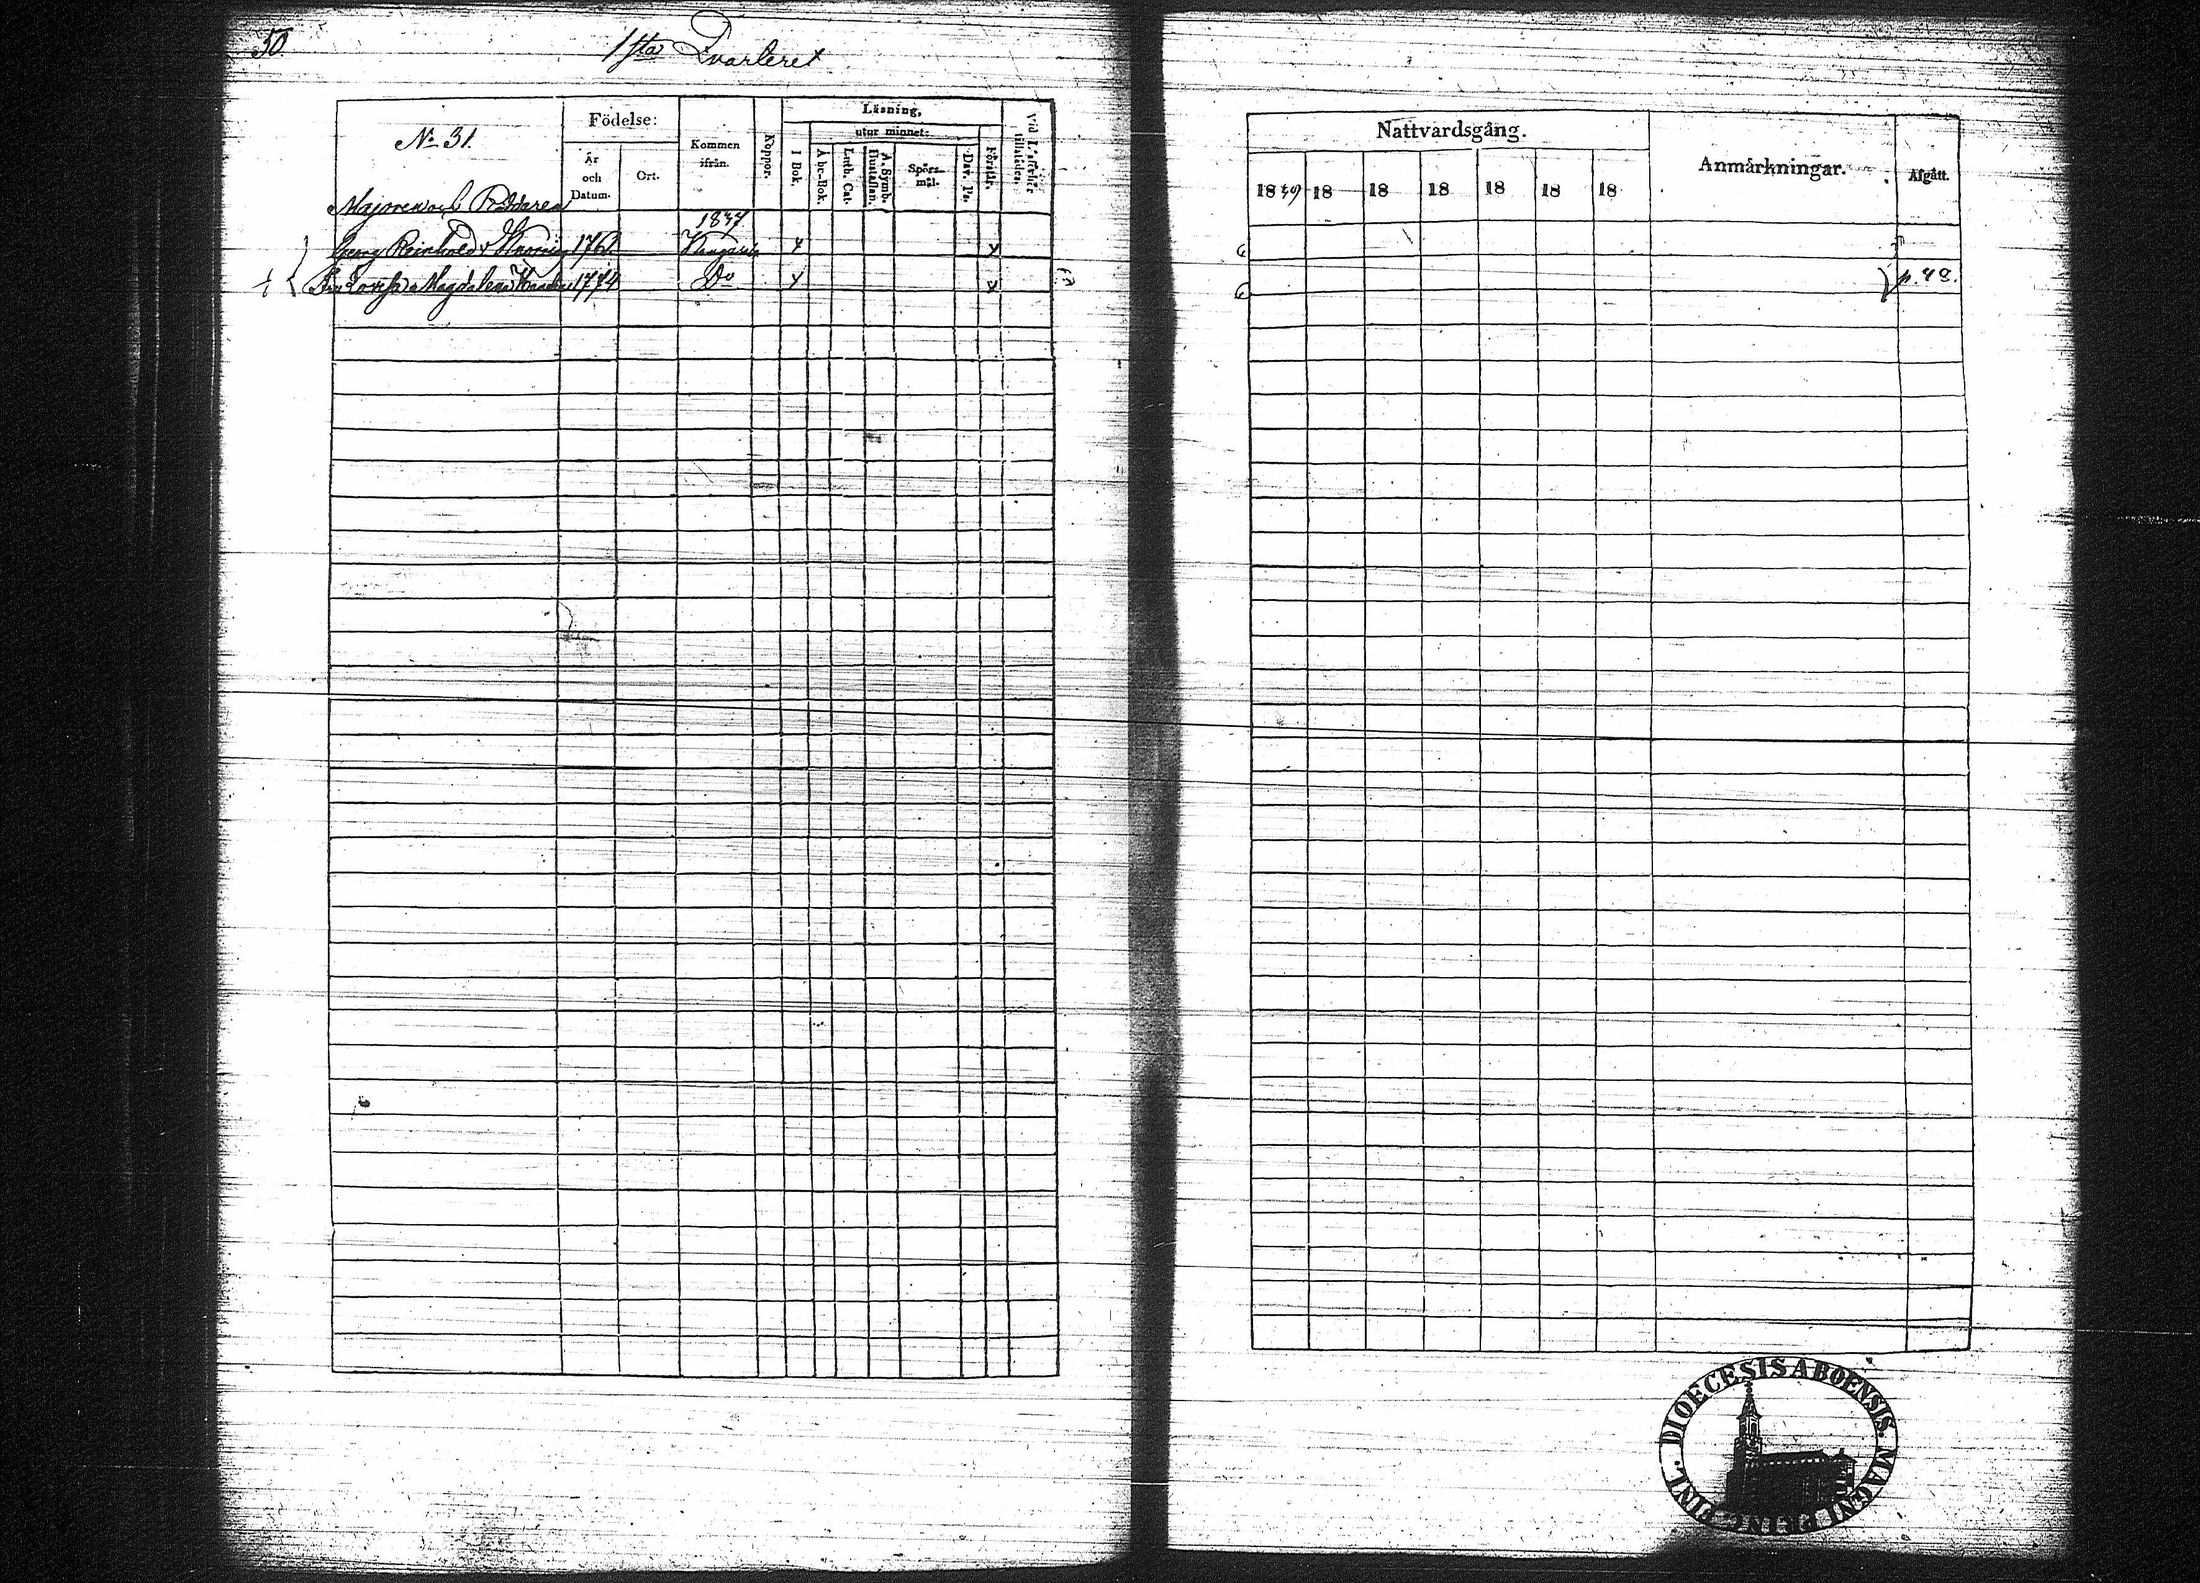 50
1sta Qvarteret
No 31.
Födelse:
År
och
Datum.
Ort.
Kommen
ifrån.
Koppor.
Läsning,
utur minnet:
I Bok.
Abc-Bok.
Luth. Cat.
A. Symb.
Hustaflan.
Spörs-
mål.
Dav. Ps.
Förstår.
Vid Läseförhör
tillstädes.
Majoren och Riddaren
1837
Georg Reinhold v 1761
Fru Lovisa Magdalena 1774 Do
Nattvardsgång.
1839 18 18 18 18 18 18
Anmärkningar.
Afgått.
p. 48.
DIOECESIS ABOENSIS. MAGNI PRINC. FINL.